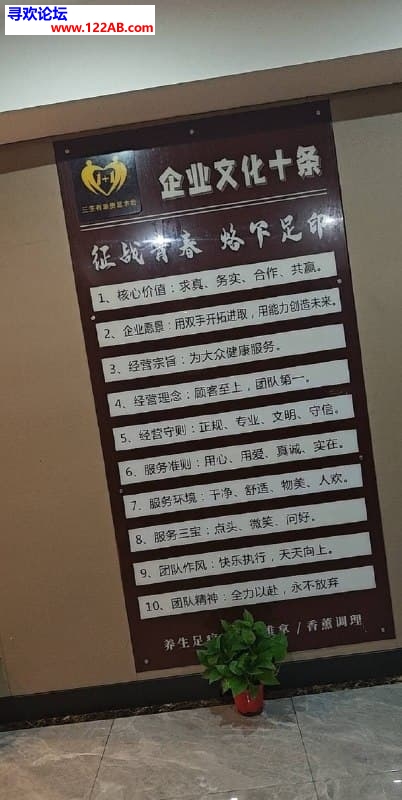 寻欢论坛
www.122AB.com
1+1
企业文化十条
征战青春 烙下足印
1、核心价值：求真、务实、合作、共赢。
2、企业愿景：用双手开拓进取，用能力创造未来。
3、经营宗旨：为大众健康服务。
4、经营理念：顾客至上，团队第一。
5、经营守则：正规、专业、文明、守信。
6、服务准则：用心、用爱、真诚、实在。
7、服务环境：干净、舒适、物美、人欢。
8、服务三宝：点头、微笑、问好。
9、团队作风：快乐执行，天天向上。
10、团队精神：全力以赴，永不放弃
养生足 推拿 / 香薰调理